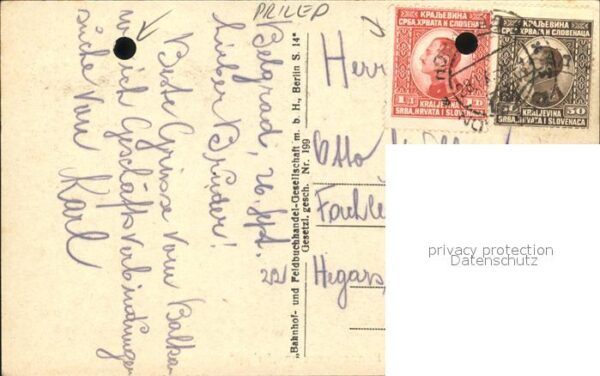 PRILEP
Belgrad, 26. Sept.
Lieber Bruder!
Beste Grüsse vom Balkan
wo ich Geschäftsverbindungen
suche von
Karl
„Bahnhof- und Feldbuchhandel-Gesellschaft m. b. H., Berlin S. 14“
Gesetzl. gesch. Nr. 199
КРАЉЕВИНА
СРБА, ХРВАТА И СЛОВЕНАЦА
KRALJEVINA
SRBA, HRVATA I SLOVENACA
КРАЉЕВИНА
СРБА, ХРВАТА И СЛОВЕНАЦА
50 50
KRALJEVINA
SRBA, HRVATA I SLOVENACA
Herr
Otto
privacy protection
Datenschutz